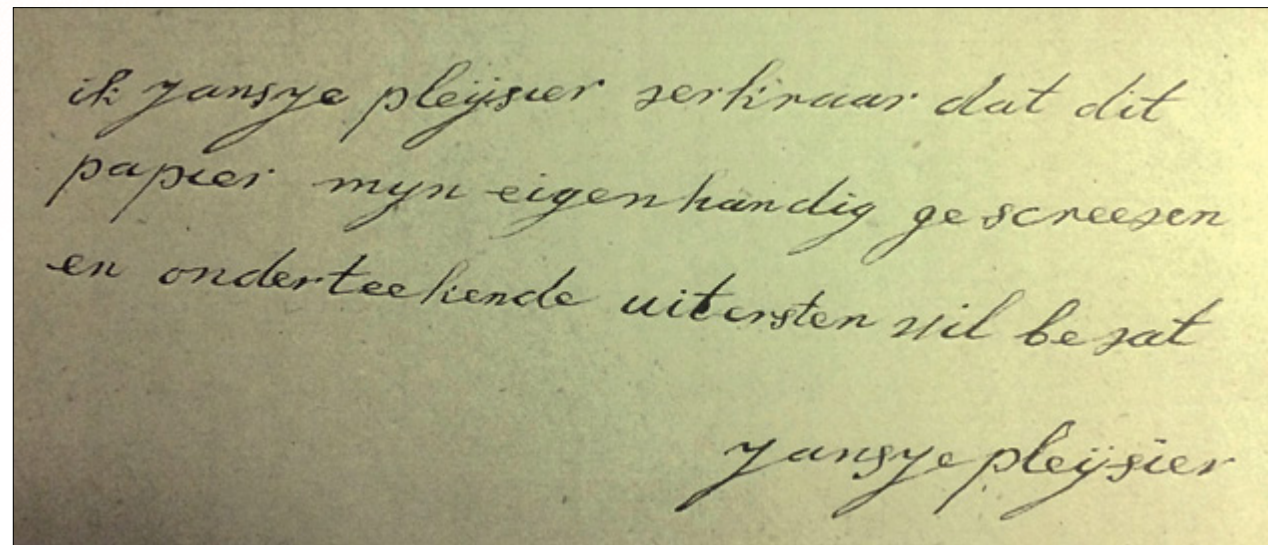 ik yansye pleijsier verkraar dat dit
papier myn eigenhandig gescreeven
en onderteekende uitersten wil bevat
yansye pleijsier